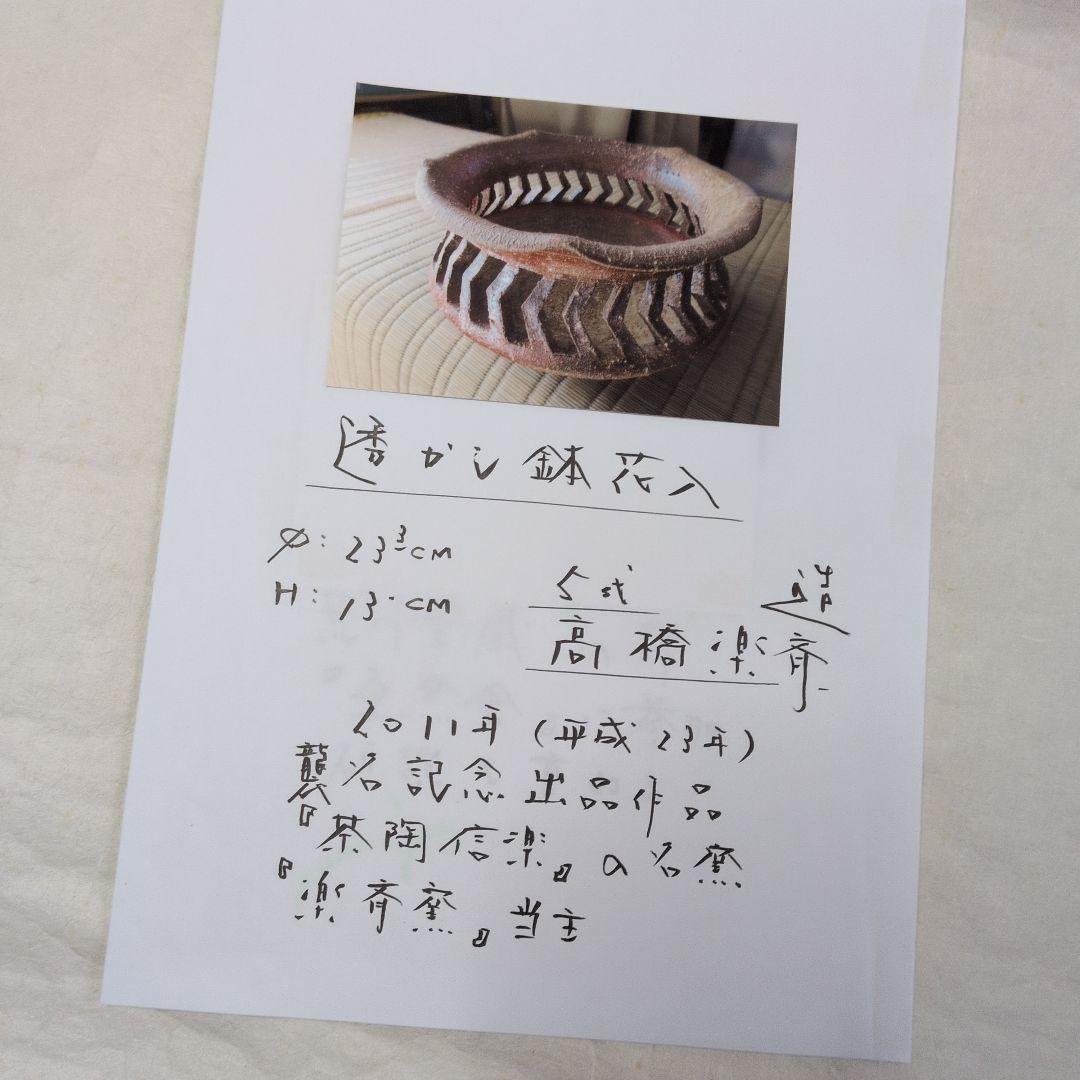 透かし鉢花入
φ: 23.3cm
H: 13.cm
5代
高橋楽斉 造
2011年(平成23年)
襲名記念出品作品
『茶陶信楽』の名窯
『楽斉窯』当主